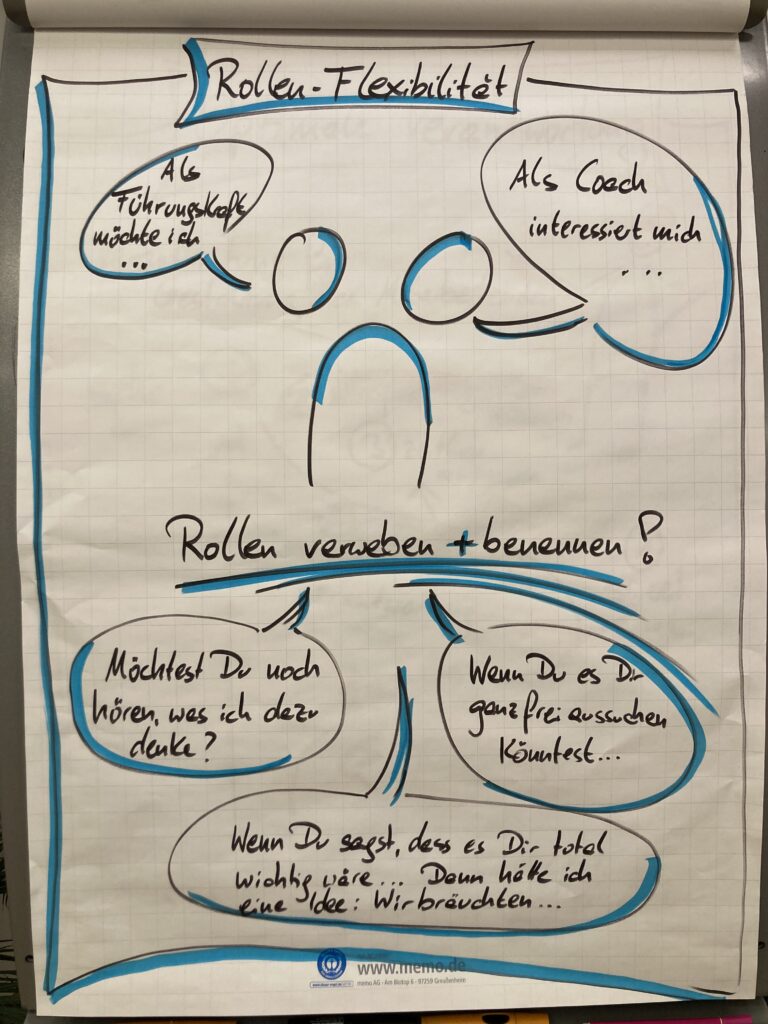 Rollen-Flexibilität
Als
Führungskraft
möchte ich
...
Als Coach
interessiert mich
....
Rollen verweben + benennen!
Möchtest Du noch
hören, was ich dazu
denke?
Wenn Du es Dir
ganz frei aussuchen
könntest...
Wenn Du sagst, dass es Dir total
wichtig wäre... Dann hätte ich
eine Idee: Wir bräuchten...
www.memo.de
memo AG · Am Biotop 6 · 97259 Greußenheim